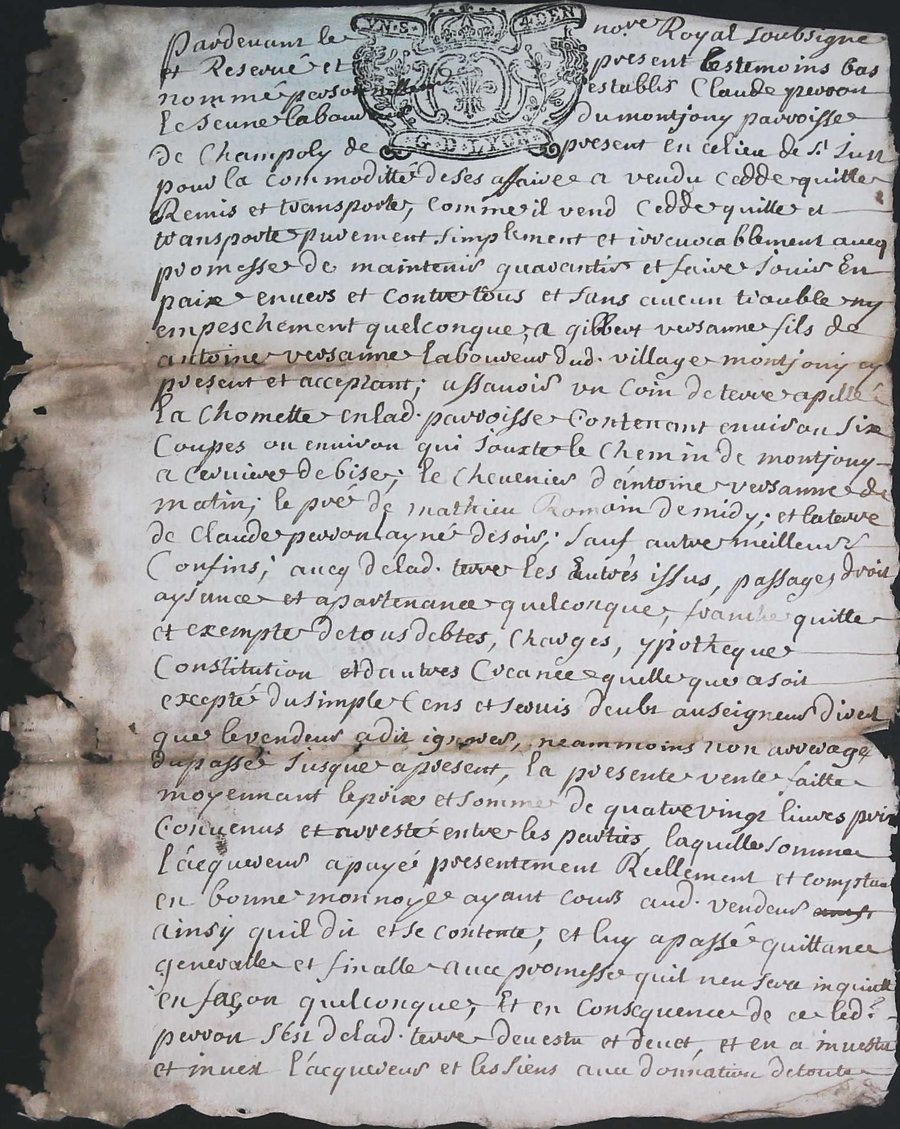 VN·S· 4·DEN
G·D·LYON·
Pardevant le nore. Royal soubsigne
et Reservé et present les temoins bas
nommé personnellem establis Claude perron
le Jeune labour du montjouy parroisse
de Champoly de present en ce lieu de St. Just
pour la commoditté de ses affaires a vendu cedde quitte
Remis et transporte, comme il vend cedde quitte et
transporte purement simplement et irrevocablement avecq
promesse de maintenir guarantir et faire Jouir En
paix envers et contre tous et sans aucun trouble ny
empeschement quelconque, a gilbert versanne fils de
antoine versanne laboureur dud. village montjouy cy
present et acceptant; assavoir un coin de terre apillé
la Chomette en lad. parroisse Contenant environ six
Coupes ou environ qui Jouxte le chemin de montjouy
a Cerviere de bise; le chevenier d'antoine versanne de
matin; le pré de mathieu Romain de midy; et la terre
de Claude perron ayné de soir; sauf autre meilleurs
Confins; avecq de lad. terre les Entrés issus, passages droit
aysance et apartenance quelconque, franche quitte
et exempte de tous debtes, charges, ypotheque
Constitution et d'autres Creance quelle que a soit
excepté du simple Cens et servis deubt au seigneur direct
que le vendeur a dit ignorer, neammoins non arrerage
du passé Jusque a present, la presente vente faitte
moyennant le prix et somme de quatre vingt livres prix
Convenus et arresté entre les parties, laquelle somme
l'acquereur a payé presentement Reellement et comptant
en bonne monnoye ayant cours aud. vendeur
ainsy quil dit et se contente, et luy a passé quittance
generalle et finalle avec promesse quil nen sera inquietté
en façon quelconque, Et en Consequence de ce led.
perron s'est de lad. terre devestu et devet, et en a investu
et invest l'acquereur et les siens avec donnation de toute